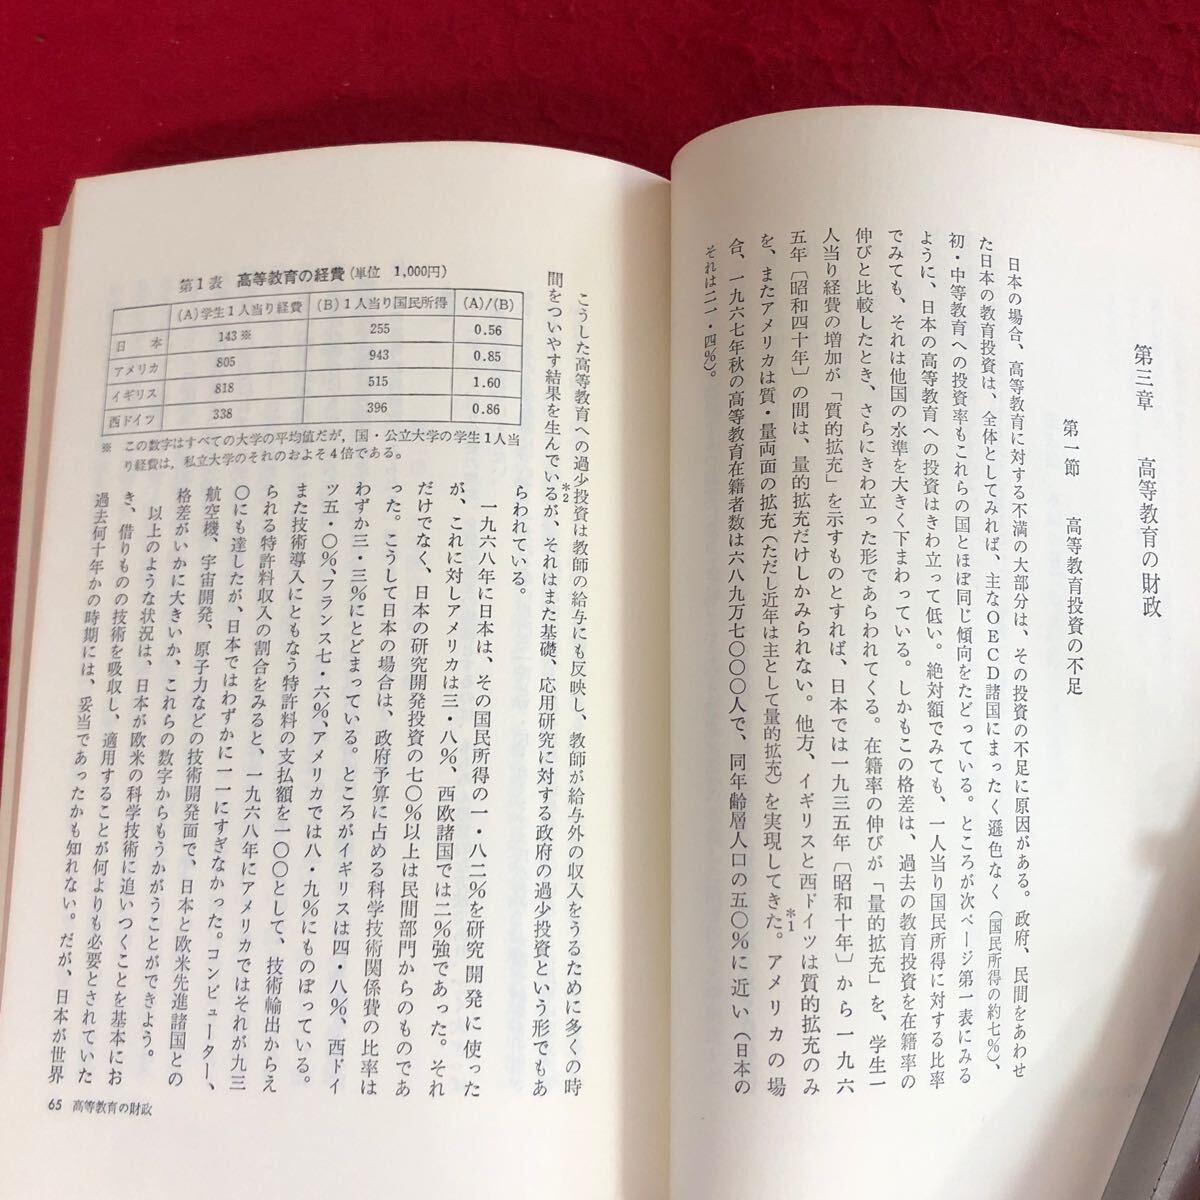 第三章　高等教育の財政
第一節　高等教育投資の不足
日本の場合、高等教育に対する不満の大部分は、その投資の不足に原因がある。政府、民間をあわせ
た日本の教育投資は、全体としてみれば、主なOECD諸国にまったく遜色なく（国民所得の約七％）、
初・中等教育への投資率もこれらの国とほぼ同じ傾向をたどっている。ところが次ページ第一表にみる
ように、日本の高等教育への投資はきわ立って低い。絶対額でみても、一人当り国民所得に対する比率
でみても、それは他国の水準を大きく下まわっている。しかもこの格差は、過去の教育投資を在籍率の
伸びと比較したとき、さらにきわ立った形であらわれてくる。在籍率の伸びが「量的拡充」を、学生一
人当り経費の増加が「質的拡充」を示すものとすれば、日本では一九三五年〔昭和十年〕から一九六
五年〔昭和四十年〕の間は、量的拡充だけしかみられない。他方、イギリスと西ドイツは質的拡充のみ
を、またアメリカは質・量両面の拡充（ただし近年は主として量的拡充）を実現してきた。＊1アメリカの場
合、一九六七年秋の高等教育在籍者数は六八九万七〇〇〇人で、同年齢層人口の五〇％に近い（日本の
それは二一・四％）。
第1表　高等教育の経費（単位　1,000円）
(A)学生1人当り経費 (B)1人当り国民所得 (A)/(B)
日　本 143※ 255 0.56
アメリカ 805 943 0.85
イギリス 818 515 1.60
西ドイツ 338 396 0.86
※　この数字はすべての大学の平均値だが，国・公立大学の学生1人当
り経費は，私立大学のそれのおよそ4倍である。
こうした高等教育への過少投資は教師の給与にも反映し、教師が給与外の収入をうるために多くの時
間をついやす結果を生んでいる＊2が、それはまた基礎、応用研究に対する政府の過少投資という形でもあ
らわれている。
一九六八年に日本は、その国民所得の一・八二％を研究開発に使った
が、これに対しアメリカは三・八％、西欧諸国では二％強であった。それ
だけでなく、日本の研究開発投資の七〇％以上は民間部門からのものであ
った。こうして日本の場合は、政府予算に占める科学技術関係費の比率は
わずか三・三％にとどまっている。ところがイギリスは四・八％、西ドイ
ツ五・〇％、フランス七・六％、アメリカでは八・九％にものぼっている。
また技術導入にともなう特許料の支払額を一〇〇として、技術輸出からえ
られる特許料収入の割合をみると、一九六八年にアメリカではそれが九三
〇にも達したが、日本ではわずかに一一にすぎなかった。コンピューター、
航空機、宇宙開発、原子力などの技術開発面で、日本と欧米先進諸国との
格差がいかに大きいか、これらの数字からもうかがうことができよう。
以上のような状況は、日本が欧米の科学技術に追いつくことを基本にお
き、借りものの技術を吸収し、適用することが何よりも必要とされていた
過去何十年かの時期には、妥当であったかも知れない。だが、日本が世界
65　高等教育の財政